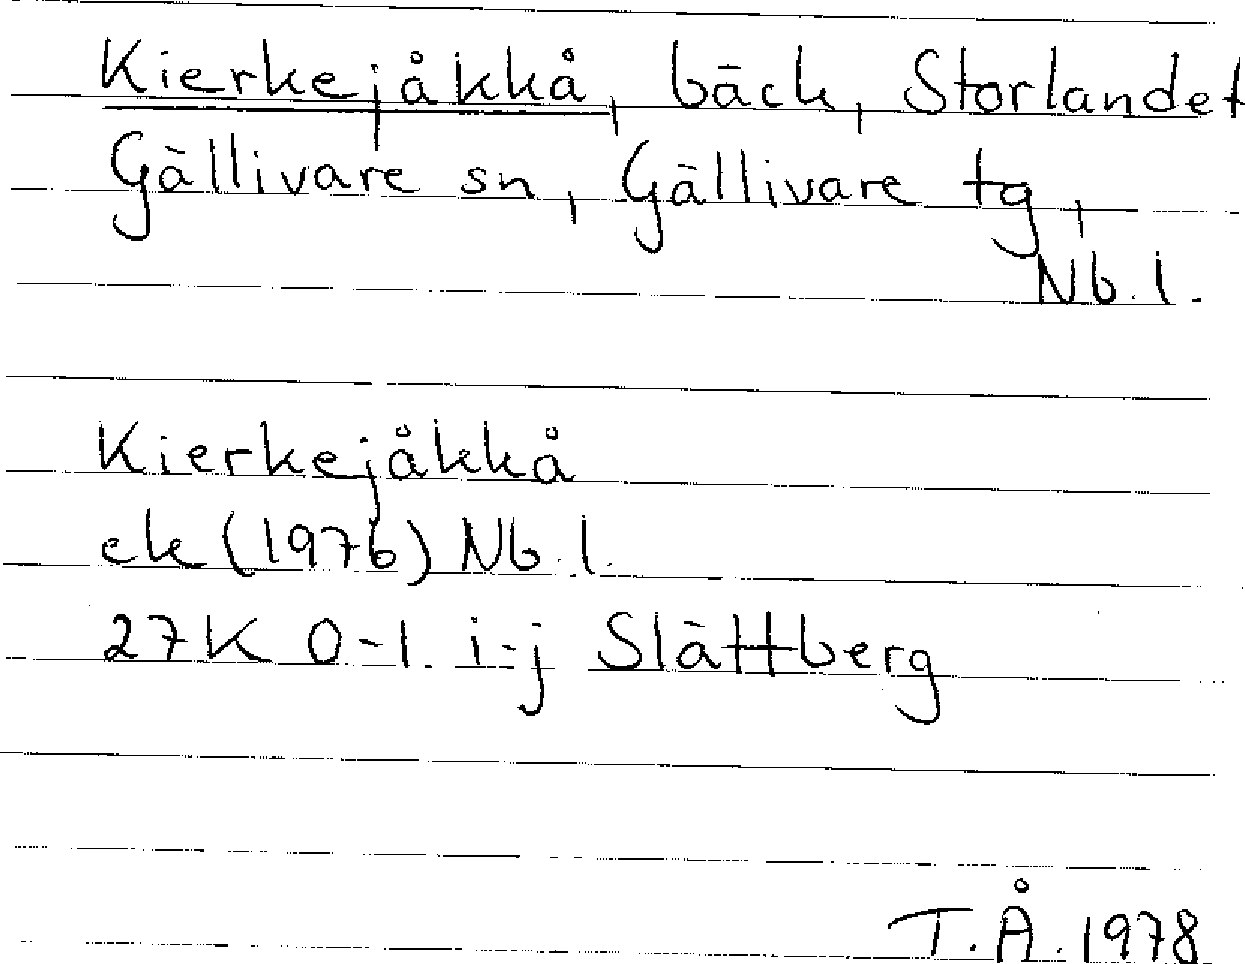 Kierkejåkkå, bäck, Storlandet
Gällivare sn, Gällivare tg,
Nb. l.
Kierkejåkkå
ek (1976) Nb. l.
27K 0-1. i-j Slättberg
T.Å. 1978